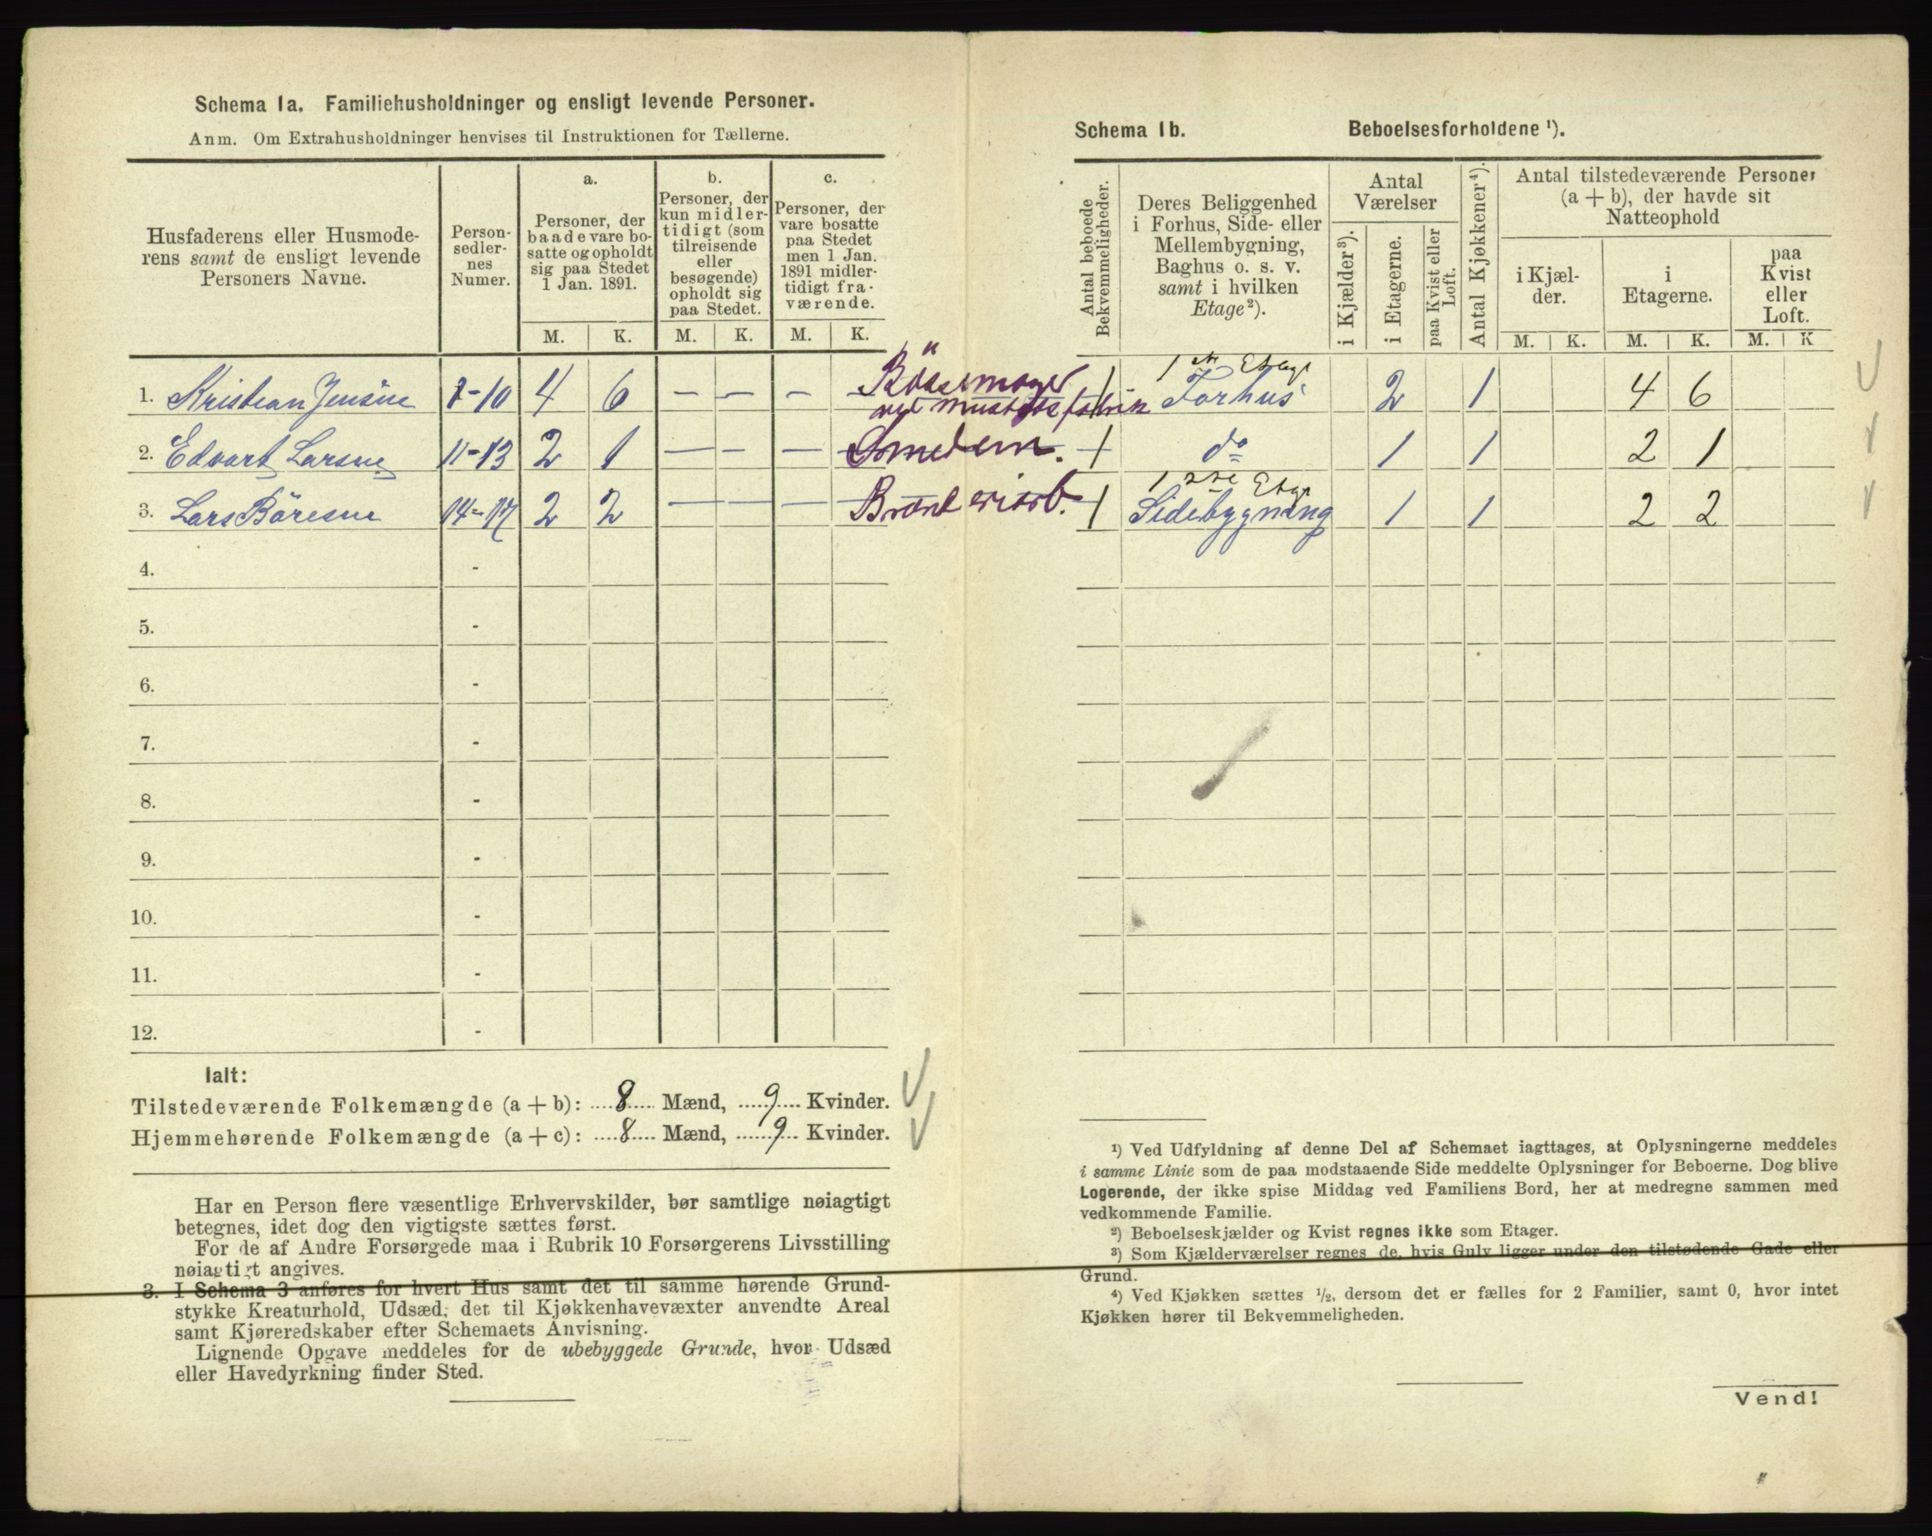 Schema 1a. Familiehusholdninger og ensligt levende Personer.
Anm. Om Extrahusholdninger henvises til Instruktionen for Tællerne.
Husfaderens eller Husmode-
rens samt de ensligt levende
Personers Navne.
Person-
sedler-
nes
Numer.
a.
Personer, der
baade vare bo-
satte og opholdt
sig paa Stedet
1 Jan. 1891.
b.
Personer, der
kun midler-
tidigt (som
tilreisende
eller
besøgende)
opholdt sig
paa Stedet.
c.
Personer, der
vare bosatte
paa Stedet
men 1 Jan.
1891 midler-
tidigt fra-
værende.
M. K. M. K. M. K.
1. Kristian Jensne 1-10 4 6 — — — —
2. Edvart Larsne 11-13 2 1 — — — — Smedem.
3. Lars Böresne 14-17 2 2 — — — —
4. -
5. -
6. -
7. -
8. -
9. -
10. -
11. -
12. -
Ialt:
Tilstedeværende Folkemængde (a + b): 8 Mænd, 9 Kvinder.
Hjemmehørende Folkemængde (a + c): 8 Mænd, 9 Kvinder.
Har en Person flere væsentlige Erhvervskilder, bør samtlige nøiagtigt
betegnes, idet dog den vigtigste sættes først.
For de af Andre Forsørgede maa i Rubrik 10 Forsørgerens Livsstilling
nøiagtigt angives.
3. I Schema 3 anføres for hvert Hus samt det til samme hørende Grund-
stykke Kreaturhold, Udsæd, det til Kjøkkenhavevæxter anvendte Areal
samt Kjøreredskaber efter Schemaets Anvisning.
Lignende Opgave meddeles for de ubebyggede Grunde, hvor Udsæd
eller Havedyrkning finder Sted.
Schema 1b. Beboelsesforholdene ¹).
Antal beboede
Bekvemmeligheder.
Deres Beliggenhed
i Forhus, Side- eller
Mellembygning,
Baghus o. s. v.
samt i hvilken
Etage²).
Antal
Værelser
i Kjælder³).
i Etagerne.
paa Kvist eller
Loft.
Antal Kjøkkener⁴).
Antal tilstedeværende Personer
(a + b), der havde sit
Natteophold
i Kjæl-
der.
i
Etagerne.
paa
Kvist
eller
Loft.
M. K. M. K. M. K
1 Etage
1 Forhus 2 1 4 6
1 do 1 1 2 1
1 Etage
1 Sidebygning 1 1 2 2
¹) Ved Udfyldning af denne Del af Schemaet iagttages, at Oplysningerne meddeles
i samme Linie som de paa modstaaende Side meddelte Oplysninger for Beboerne. Dog blive
Logerende, der ikke spise Middag ved Familiens Bord, her at medregne sammen med
vedkommende Familie.
²) Beboelseskjælder og Kvist regnes ikke som Etager.
³) Som Kjælderværelser regnes de, hvis Gulv ligger under den tilstødende Gade eller
Grund.
⁴) Ved Kjøkken sættes ½, dersom det er fælles for 2 Familier, samt 0, hvor intet
Kjøkken hører til Bekvemmeligheden.
Vend!